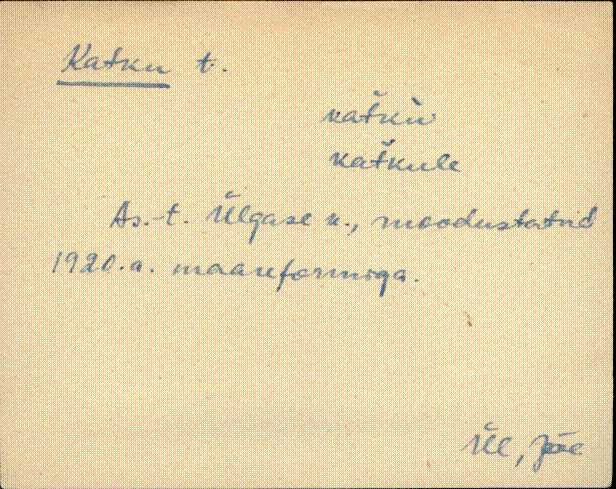 Katku t.
kat̆kù
kat̆kule
As.-t. Ülgase k., moodustatud
1920.a. maareformiga.
Ül, Jõe